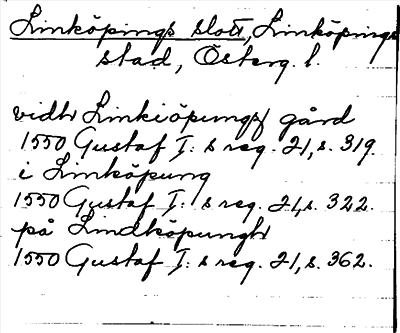 Linköpings slott, Linköpings
stad, Österg. l.
vidhr Linkiöpungs gård
1550 Gustaf I: s reg. 21, s. 319.
i Linköpung
1550 Gustaf I: s reg. 21, s. 322.
på Lindköpunghr
1550 Gustaf I: s reg. 21, s. 362.